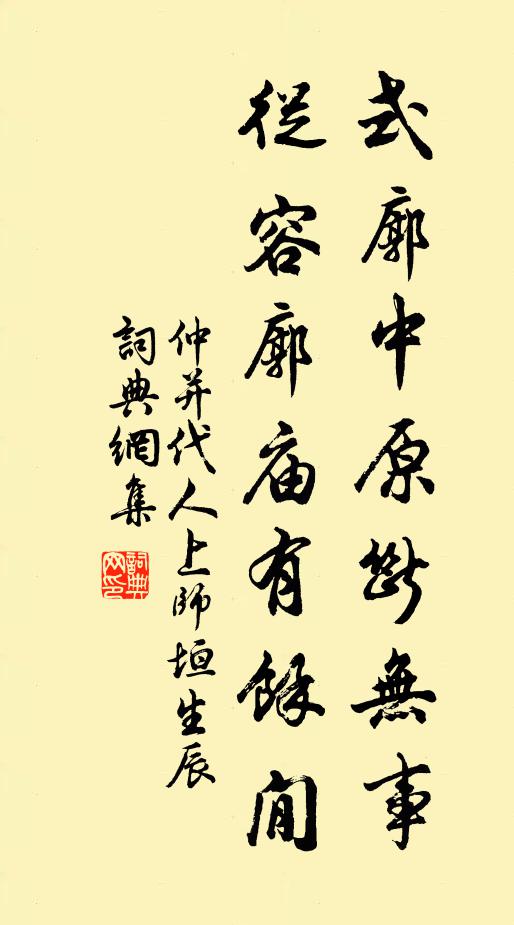 式廓中原斷無事
從容廓庙有餘閒
仲并代人上師垣生辰
詞典網集
詞典网印